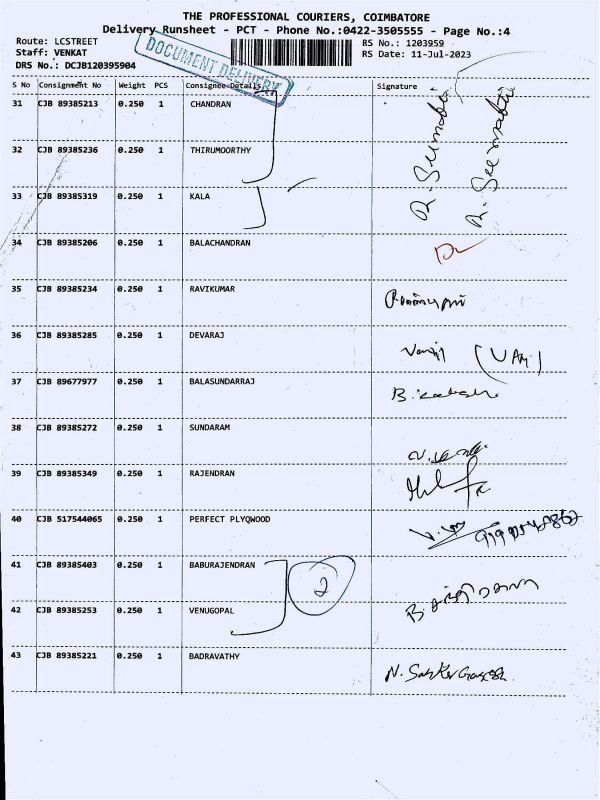 THE PROFESSIONAL COURIERS, COIMBATORE
Delivery Runsheet - PCT - Phone No.:0422-3505555 - Page No.:4
Route: LCSTREET
RS No.: 1203959
Staff: VENKAT
RS Date: 11-Jul-2023
DRS No.: DCJB120395904
DOCUMENT DELIVERY
S No Consignment No Weight PCS Consignee Details Signature
31 CJB 89385213 0.250 1 CHANDRAN
32 CJB 89385236 0.250 1 THIRUMOORTHY
33 CJB 89385319 0.250 1 KALA
34 CJB 89385206 0.250 1 BALACHANDRAN
35 CJB 89385234 0.250 1 RAVIKUMAR
36 CJB 89385285 0.250 1 DEVARAJ
37 CJB 89677977 0.250 1 BALASUNDARRAJ
38 CJB 89385272 0.250 1 SUNDARAM
39 CJB 89385349 0.250 1 RAJENDRAN
40 CJB 517544065 0.250 1 PERFECT PLYQWOOD
41 CJB 89385403 0.250 1 BABURAJENDRAN
2
42 CJB 89385253 0.250 1 VENUGOPAL
43 CJB 89385221 0.250 1 BADRAVATHY